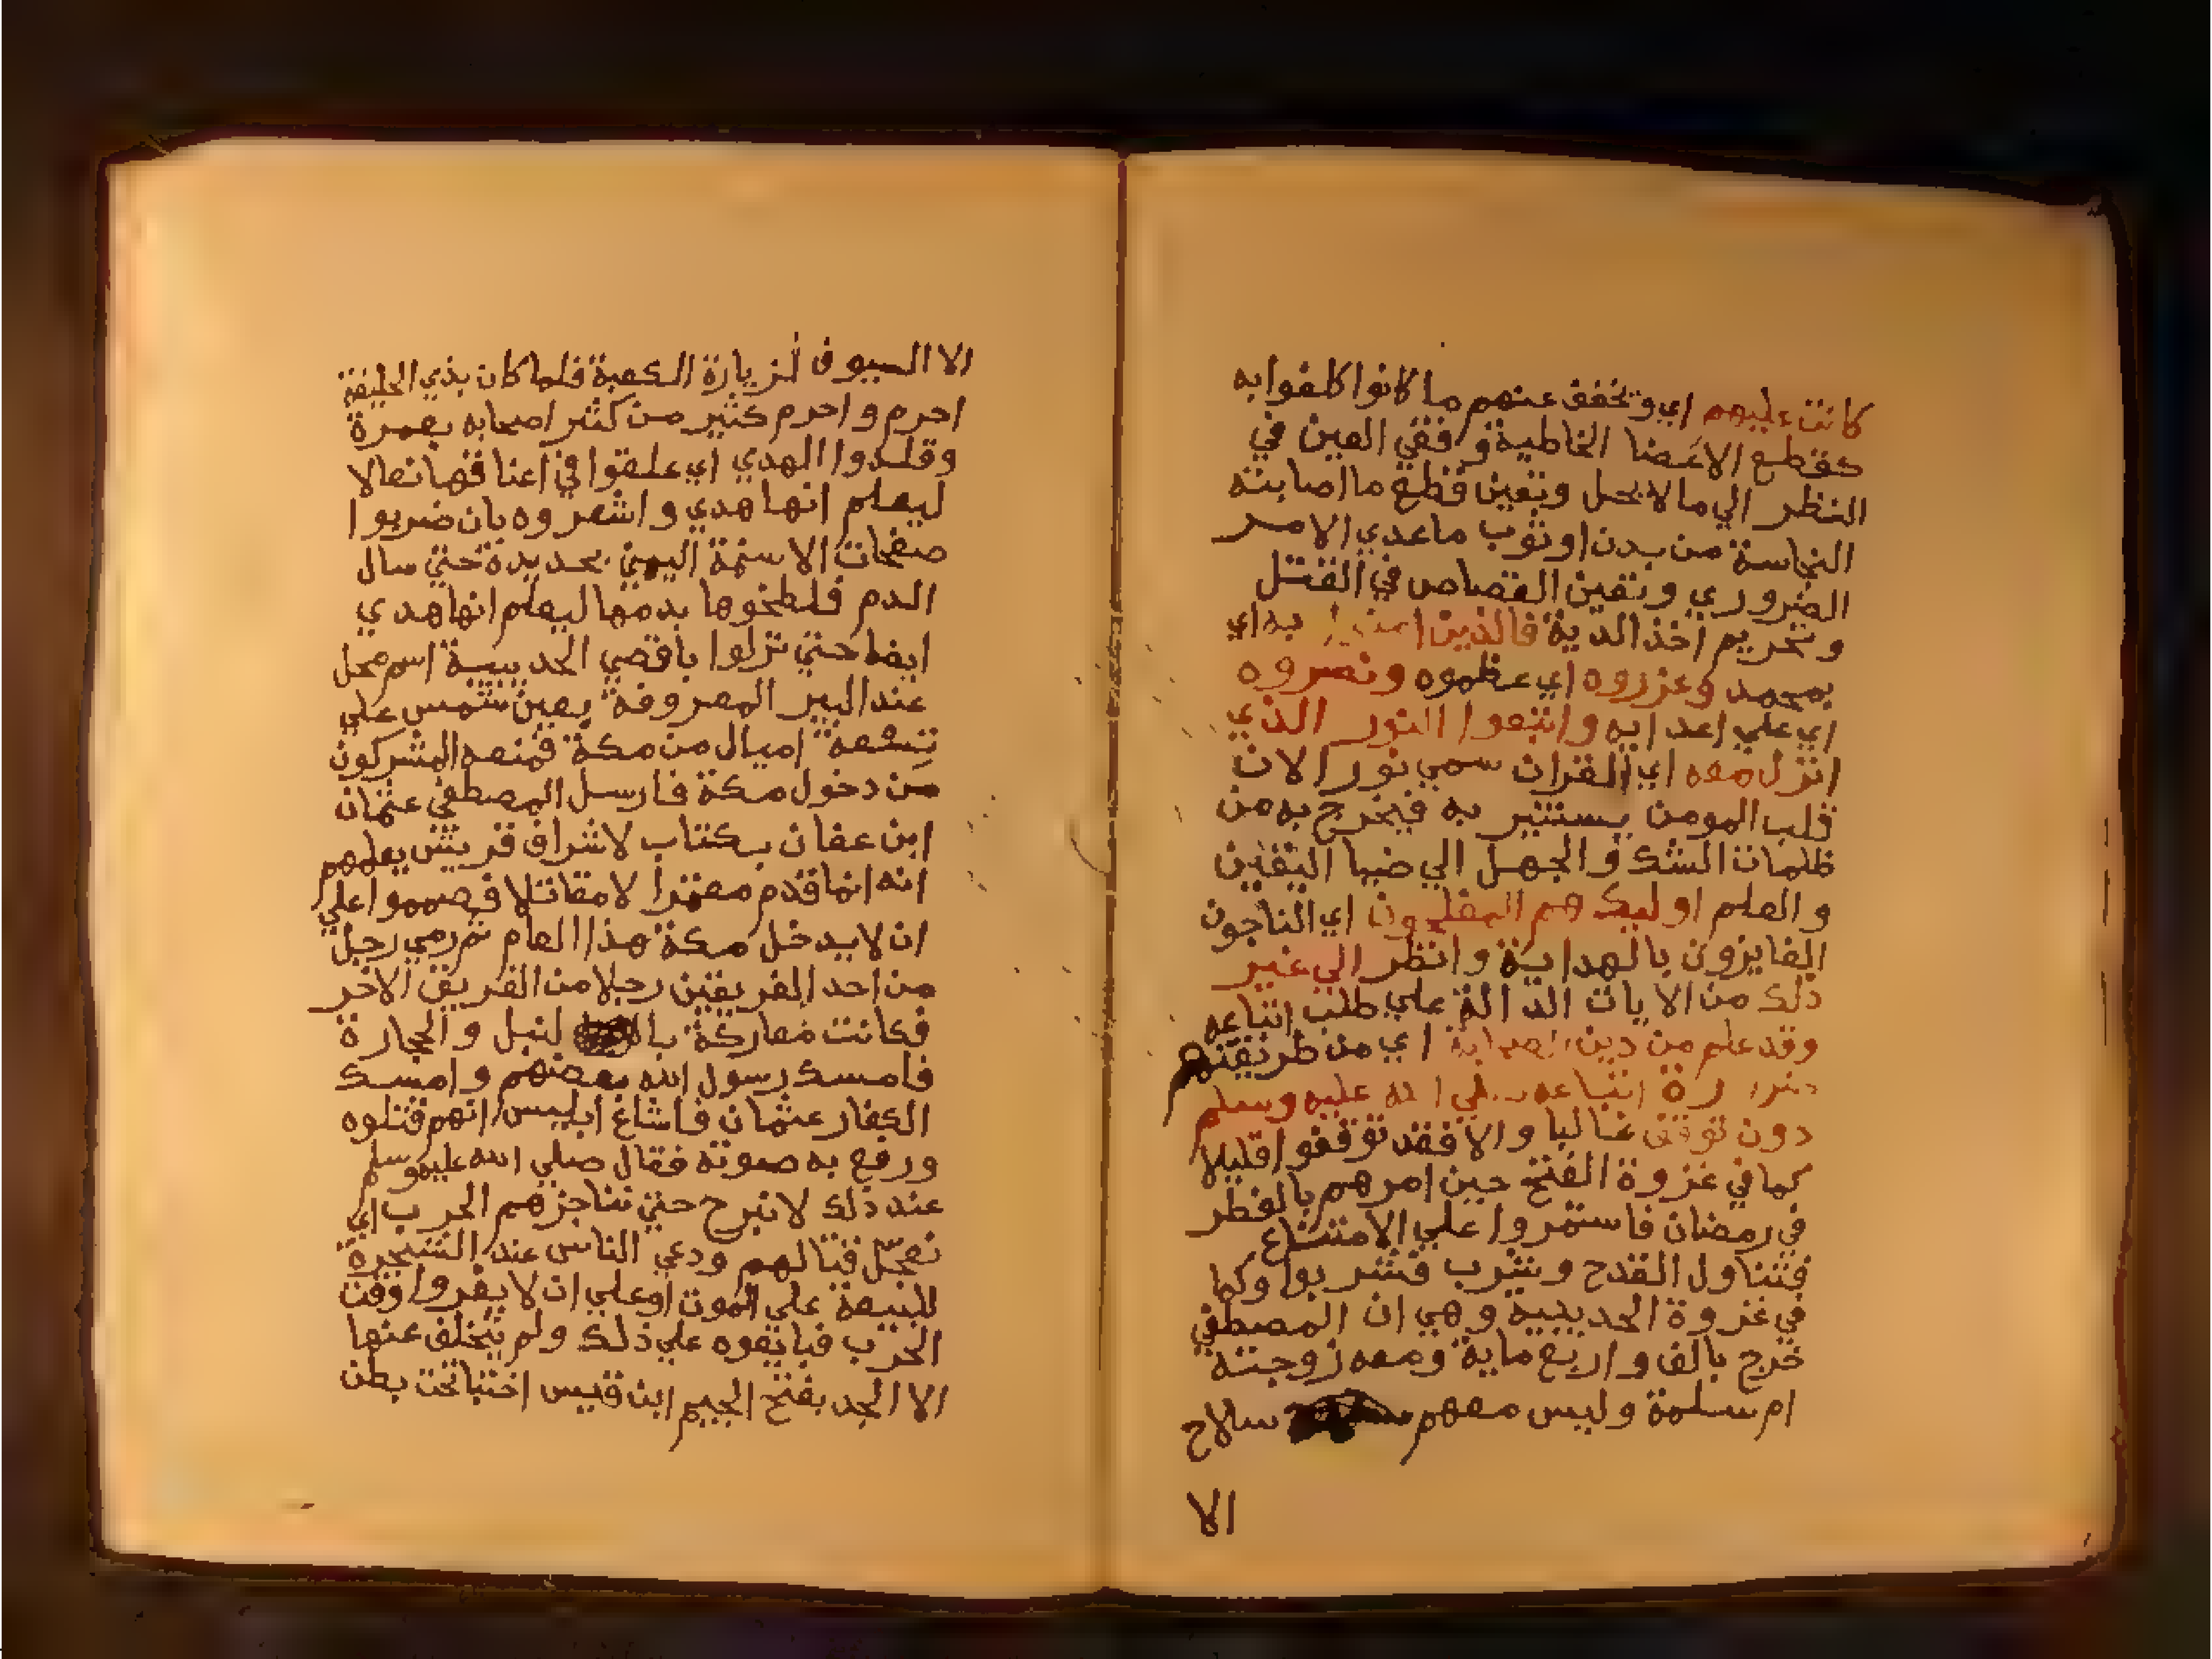 كانت عليهم اي وتخفف عنهم ما كانوا كلفوا به
كقطع الاعضا الخاطية وفقي العين في
النظر الي ما لا يحل وتعين قطع ما اصابته
النجاسة من بدن او ثوب ما عدي الامر
الضروري وتعين القصاص في القتل
وتحريم اخذ الدية فالذين امنوا به اي
بمحمد وعزروه اي عظموه ونصروه
اي علي اعدايه واتبعوا النور الذي
انزل معه اي القران سمي نورا لان
قلب المومن يستنير به فيخرج به من
ظلمات الشك والجهل الي ضيا اليقين
والعلم اوليك هم المفلحون اي الناجون
الفايزون بالهداية وانظر الي غير
ذلك من الايات الدالة علي طلب اتباعه
وقد علم من دين الصحابة اي من طريقتهم
ضرورة اتباعه صلي الله عليه وسلم
دون توقف غالبا والا فقد توقفوا قليلا
كما في غزوة الفتح حين امرهم بالفطر
في رمضان فاستمروا علي الامتناع
فتناول القدح وشرب فشربوا وكما
في غزوة الحديبية وهي ان المصطفي
خرج بالف واربع ماية ومعه زوجته
ام سلمة وليس معهم سلاح
الا
الا السيوف لزيارة الكعبة فلما كان بذي الحليفة
احرم واحرم كثير من كثير اصحابه بعمرة
وقلدوا الهدي اي علقوا في اعناقها نعالا
ليعلم انها هدي واشعروه بان ضربوا
صفحات الاسنمة اليمني بحديدة حتي سال
الدم فلطخوها بدمها ليعلم انها هدي
ايضا حتي نزلوا باقصي الحديبية اسم محل
عند البير المعروفة بعين شمس علي
تسعة اميال من مكة فمنعه المشركون
من دخول مكة فارسل المصطفي عثمان
ابن عفان بكتاب لاشراف قريش يعلمهم
انه انما قدم معتمرا لا مقاتلا فصمموا علي
ان لا يدخل مكة هذا العام ثم رمي رجل
من احد الفريقين رجلا من الفريق الاخر
فكانت معاركة بالنبل والحجارة
فامسك رسول الله بعضهم وامسك
الكفار عثمان فاشاع ابليس انهم قتلوه
ورفع به صوته فقال صلي الله عليه وسلم
عند ذلك لا نبرح حتي نناجزهم الحرب اي
نعجل قتالهم ودعي الناس عند الشجرة
للبيعة علي الموت او علي ان لا يفروا وقت
الحرب فبايعوه علي ذلك ولم يتخلف عنها
الا الجد بفتح الجيم ابن قيس اختبا تحت بطن